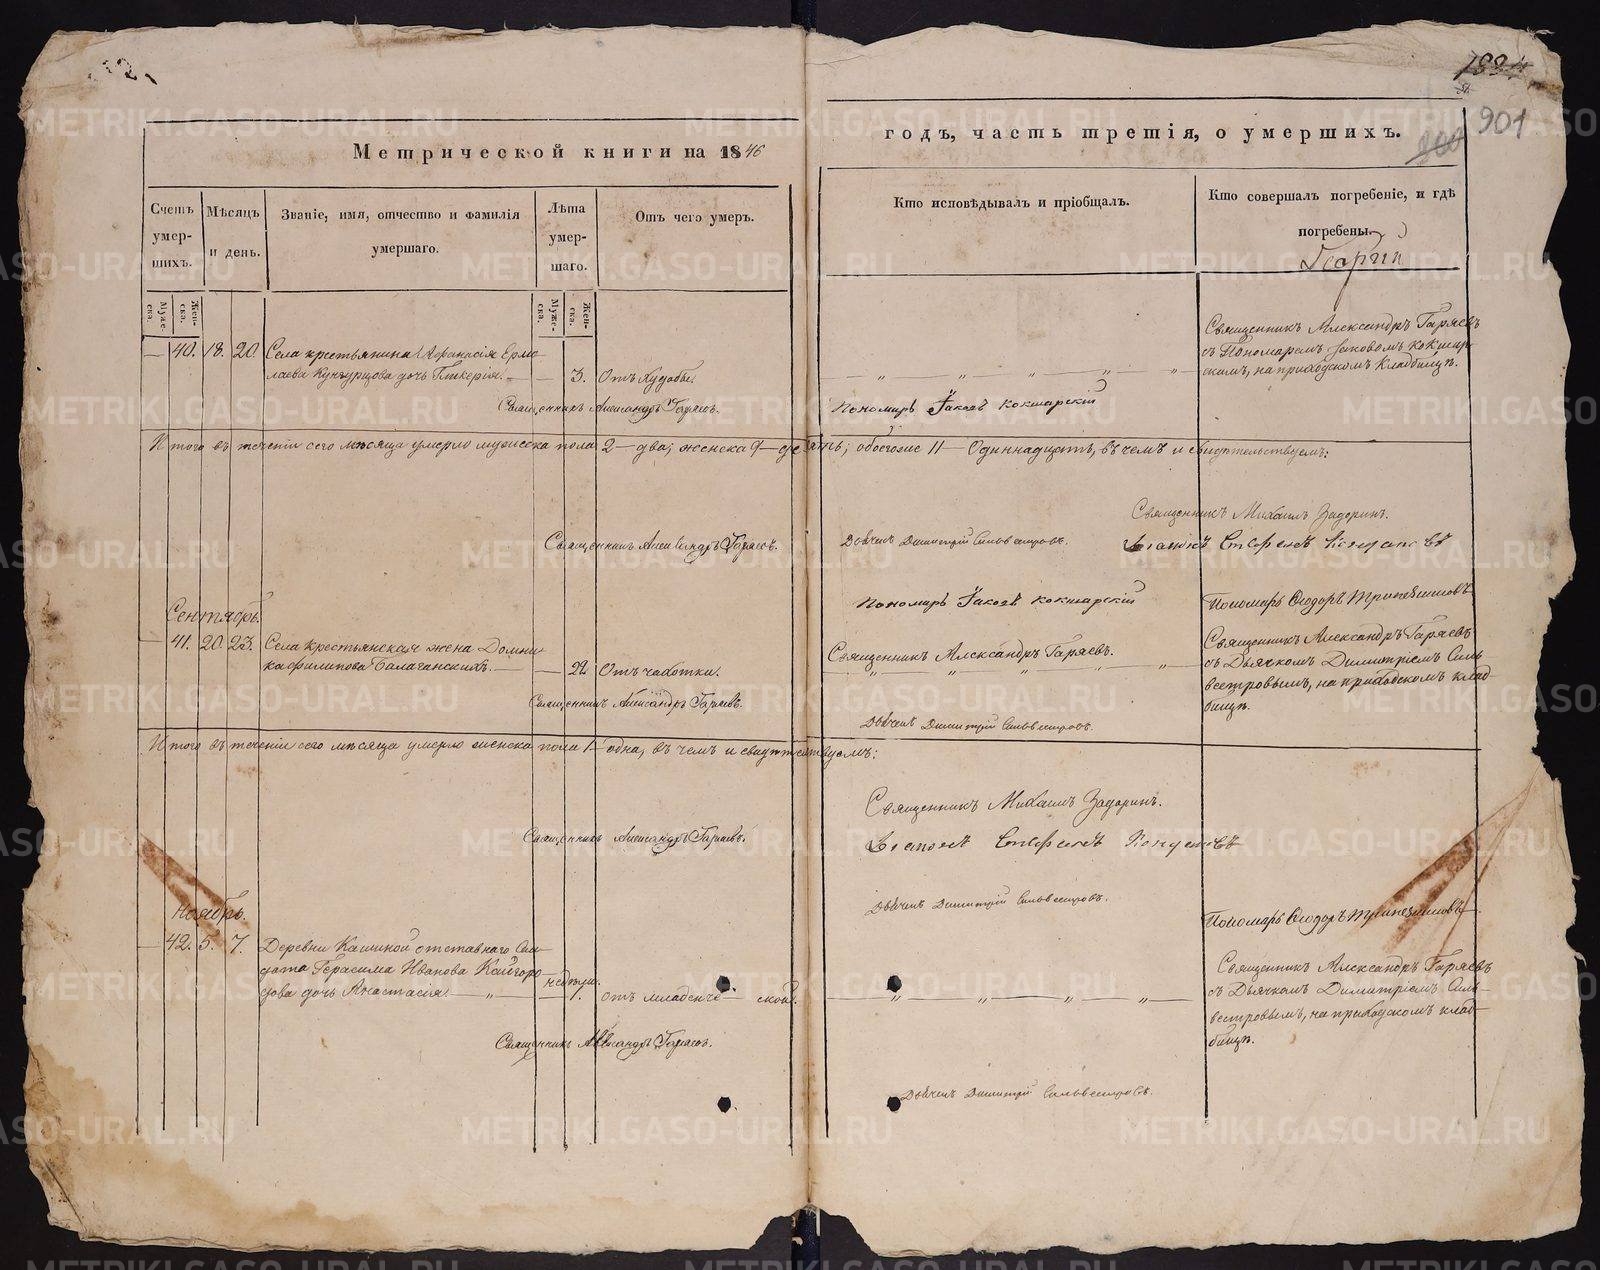 1834
901
Метрической книги на 1846
годъ, часть третія, о умершихъ.
Счетъ умер-шихъ.
Мѣсяцъ и день.
Званіе, имя, отчество и фамилія умершаго.
Лѣта умер-шаго.
Отъ чего умеръ.
Кто исповѣдывалъ и пріобщалъ.
Кто совершалъ погребеніе, и гдѣ погребены.
Муже-ска.
Жен-ска.
Муже-ска.
Жен-ска.
40. 18. 20
Села крестьянина Афанасія Ермо-
лаева Кунгурцова дочь Гликерія.
3. Отъ худобы.
Священникъ Александръ Гаряевъ
съ Пономаремъ Іаковомъ Кокшар-
скимъ, на приходскомъ Кладбищѣ.
Священникъ Александръ Гаряевъ.
Пономарь Іаковъ Кокшарскій
Итого въ теченіи сего мѣсяца умерло мужеска пола 2—два; женска 9—девять; обоегоже 11—Одиннадцать, въ чемъ и свидѣтельствуемъ:
Священникъ Михаилъ Задоринъ.
Священникъ Александръ Гаряевъ.
Дьячекъ Димитрій Сильвестровъ.
Пономарь Іаковъ Кокшарскій
Пономарь Ѳеодоръ
Сентябрь.
41. 20. 23.
Села крестьянская жена Домни-
ка Филипова Балаганскихъ.
22 Отъ чахотки.
Священникъ Александръ Гаряевъ.
Священникъ Александръ Гаряевъ
съ Дьячкомъ Димитріемъ Силь-
вестровымъ, на приходскомъ клад-
бищѣ.
Священникъ Александръ Гаряевъ.
Дьячекъ Димитрій Сильвестровъ.
Итого въ теченіи сего мѣсяца умерло женска пола 1—одна, въ чемъ и свидѣтельствуемъ:
Священникъ Михаилъ Задоринъ.
Священникъ Александръ Гаряевъ.
Дьячекъ Димитрій Сильвестровъ.
Пономарь Ѳеодоръ
Ноябрь.
42. 5. 7.
Деревни Кашиной отставнаго Сол-
дата Герасима Иванова Кайгоро-
дова дочь Анастасія.
1. недѣли.
Отъ младенческой.
Священникъ Александръ Гаряевъ
съ Дьячкомъ Димитріемъ Силь-
вестровымъ, на приходскомъ клад-
бищѣ.
Священникъ Александръ Гаряевъ.
Дьячекъ Димитрій Сильвестровъ.
METRIKI.GASO-URAL.RU